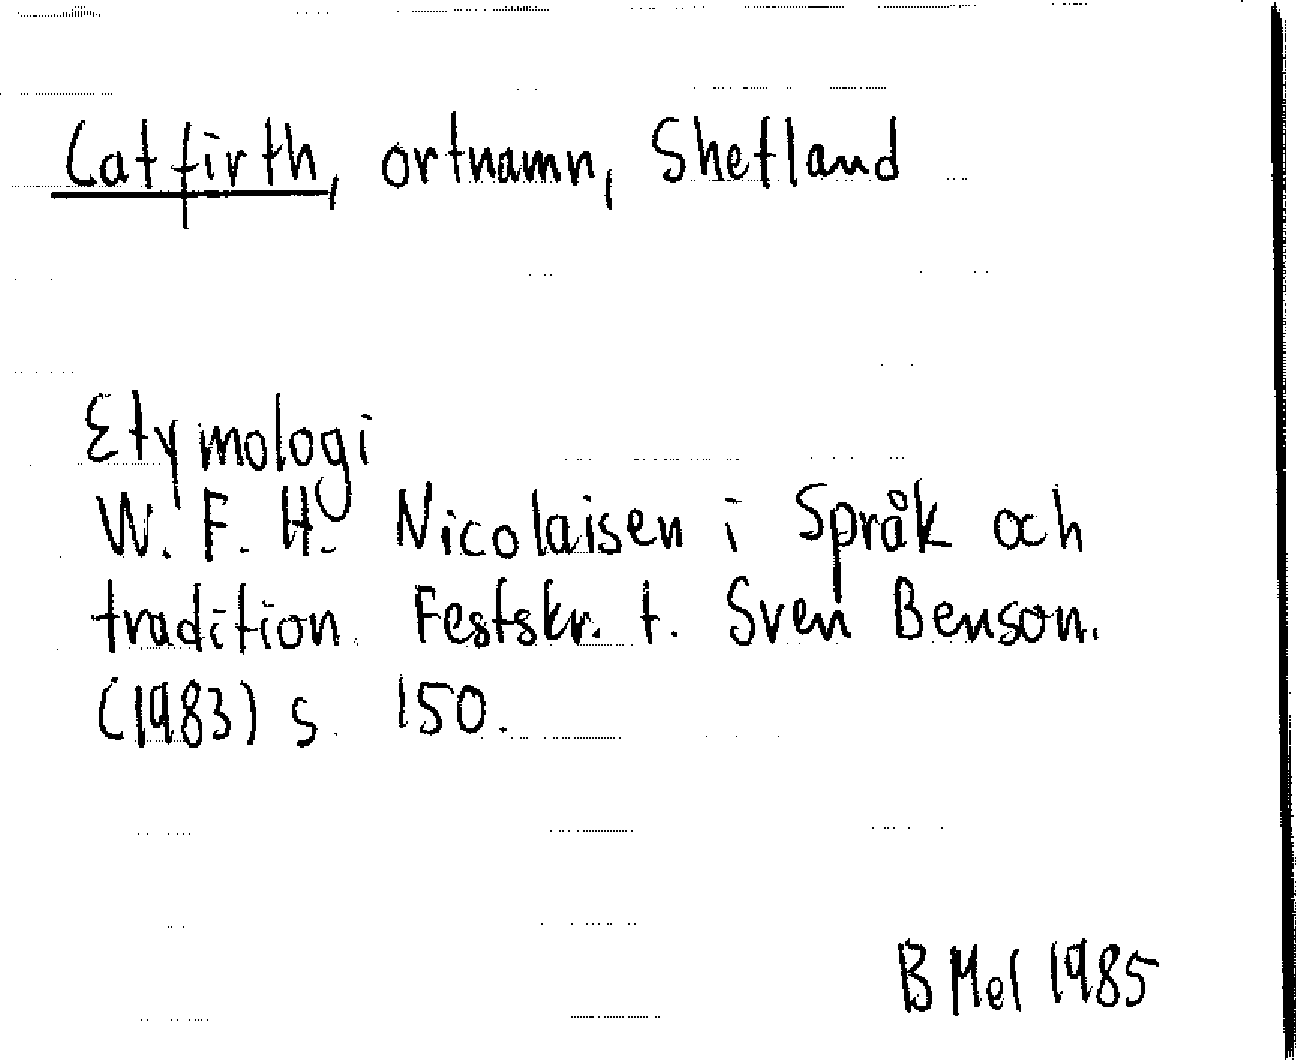 Catfirth, ortnamn, Shetland
Etymologi
W. F. H. Nicolaisen i Språk och
tradition. Festskr. t. Sven Benson.
(1983) s. 150.
B Mel 1985